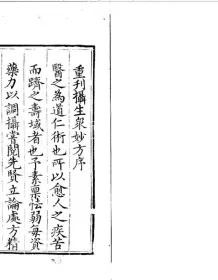 重刊攝生衆妙方序
醫之為道仁術也所以愈人之疾苦
而躋之壽域者也予素稟怯弱每資
藥力以調攝嘗聞先賢立論處方精